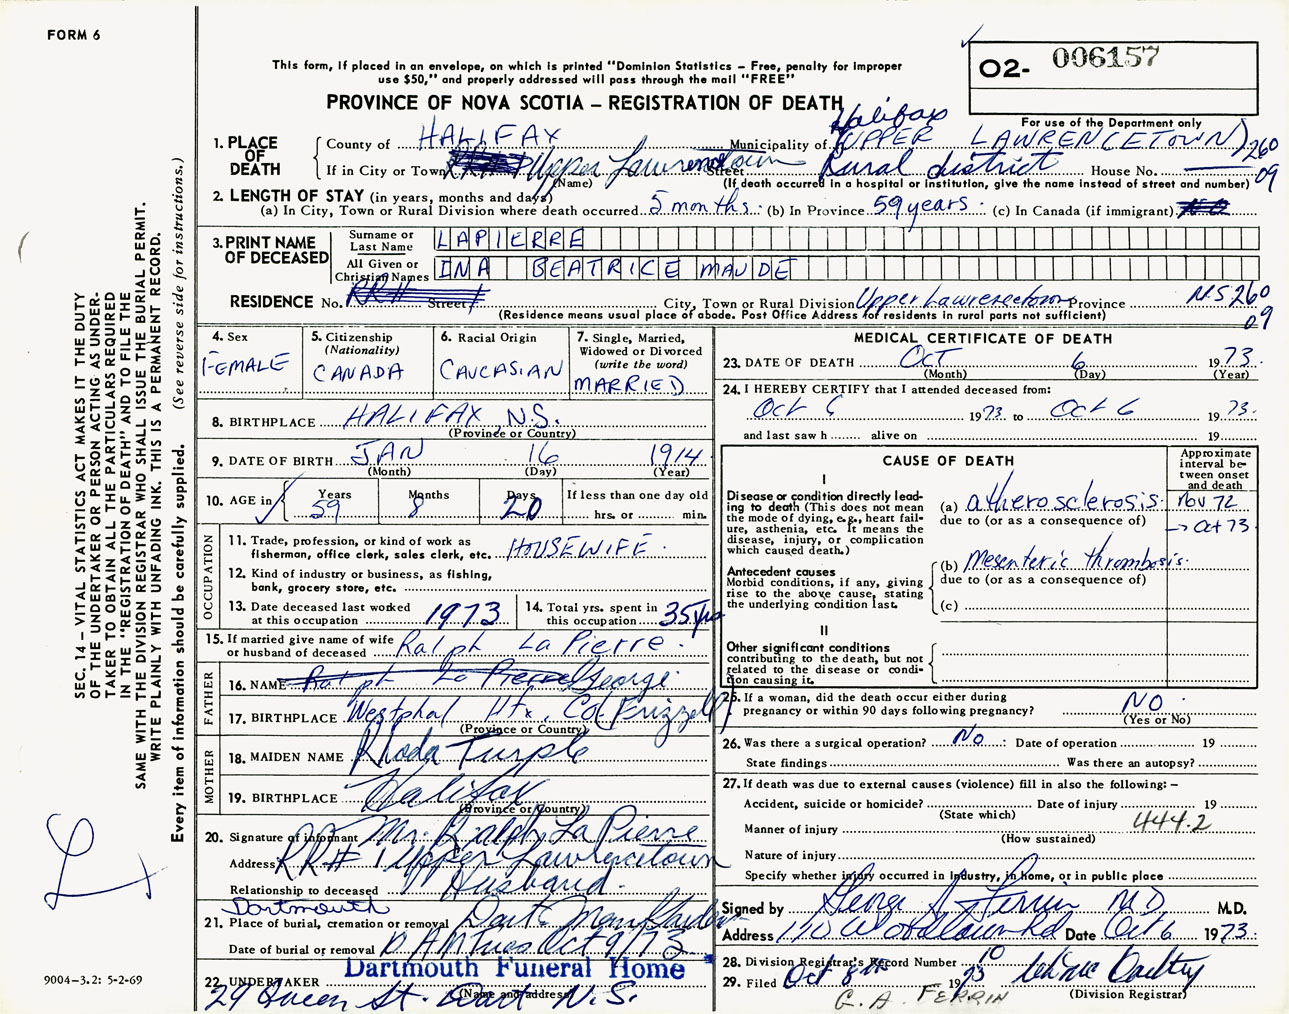 FORM 6
This form, if placed in an envelope, on which is printed "Dominion Statistics — Free, penalty for improper
use $50," and properly addressed will pass through the mail "FREE"
PROVINCE OF NOVA SCOTIA — REGISTRATION OF DEATH
O2- 006157
For use of the Department only
1. PLACE OF DEATH
County of HALIFAX Municipality of Halifax (UPPER LAWRENCETOWN)
If in City or Town Upper Lawrencetown Street Rural district House No. 260
09
(Name) (If death occurred in a hospital or institution, give the name instead of street and number)
2. LENGTH OF STAY (in years, months and days)
(a) In City, Town or Rural Division where death occurred 5 months. (b) In Province 59 years. (c) In Canada (if immigrant)
3. PRINT NAME OF DECEASED
Surname or Last Name LAPIERRE
All Given or Christian Names INA BEATRICE MAUDE
RESIDENCE No. RR# Street 1 City, Town or Rural Division Upper Lawrencetown Province N.S 260
09
(Residence means usual place of abode. Post Office Address for residents in rural parts not sufficient)
4. Sex
FEMALE
5. Citizenship
(Nationality)
CANADA
6. Racial Origin
CAUCASIAN
7. Single, Married,
Widowed or Divorced
(write the word)
MARRIED
8. BIRTHPLACE HALIFAX N.S.
(Province or Country)
9. DATE OF BIRTH JAN 16 1914
(Month) (Day) (Year)
10. AGE in
Years Months Days If less than one day old
59 8 20 hrs. or min.
OCCUPATION
11. Trade, profession, or kind of work as
fisherman, office clerk, sales clerk, etc. HOUSEWIFE.
12. Kind of industry or business, as fishing,
bank, grocery store, etc.
13. Date deceased last worked
at this occupation 1973
14. Total yrs. spent in
this occupation 35 yrs
15. If married give name of wife
or husband of deceased Ralph La Pierre.
FATHER
16. NAME Ralph La Pierre George
17. BIRTHPLACE Westphal Hfx. Co. (Frizzell)
(Province or Country)
MOTHER
18. MAIDEN NAME Rhoda Turple
19. BIRTHPLACE Halifax
(Province or Country)
20. Signature of informant Mr. Ralph La Pierre
Address RR# 1 Upper Lawrencetown
Relationship to deceased Husband.
Dartmouth
21. Place of burial, cremation or removal Dart. Mem.
Date of burial or removal Oct 9/73
Dartmouth Funeral Home
22. UNDERTAKER
29 Queen St. Dart N.S.
(Name and address)
MEDICAL CERTIFICATE OF DEATH
23. DATE OF DEATH OCT 6 1973.
(Month) (Day) (Year)
24. I HEREBY CERTIFY that I attended deceased from:
Oct 6 1973 to Oct 6 1973.
and last saw h alive on 19
CAUSE OF DEATH
Approximate
interval be-
tween onset
and death
I
Disease or condition directly lead-
ing to death (This does not mean
the mode of dying, e.g., heart fail-
ure, asthenia, etc. It means the
disease, injury, or complication
which caused death.)
(a) atherosclerosis. Nov 72
due to (or as a consequence of) → Oct 73
Antecedent causes
Morbid conditions, if any, giving
rise to the above cause, stating
the underlying condition last.
(b) Mesenteric thrombosis.
due to (or as a consequence of)
(c)
II
Other significant conditions
contributing to the death, but not
related to the disease or condi-
tion causing it.
25. If a woman, did the death occur either during
pregnancy or within 90 days following pregnancy? NO.
(Yes or No)
26. Was there a surgical operation? No. Date of operation 19
State findings Was there an autopsy?
27. If death was due to external causes (violence) fill in also the following: —
Accident, suicide or homicide? Date of injury 19
(State which)
Manner of injury 444.2
(How sustained)
Nature of injury
Specify whether injury occurred in industry, in home, or in public place
Signed by George A Ferrin M D M.D.
Address 120 Woodlawn Rd Date Oct 6 1973.
28. Division Registrar's Record Number 10
29. Filed Oct 8th 1973
G. A. FERRIN
(Division Registrar)
SEC. 14 – VITAL STATISTICS ACT MAKES IT THE DUTY
OF THE UNDERTAKER OR PERSON ACTING AS UNDER-
TAKER TO OBTAIN ALL THE PARTICULARS REQUIRED
IN THE "REGISTRATION OF DEATH" AND TO FILE THE
SAME WITH THE DIVISION REGISTRAR WHO SHALL ISSUE THE BURIAL PERMIT.
WRITE PLAINLY WITH UNFADING INK. THIS IS A PERMANENT RECORD.
Every item of information should be carefully supplied. (See reverse side for instructions.)
9004-3.2: 5-2-69